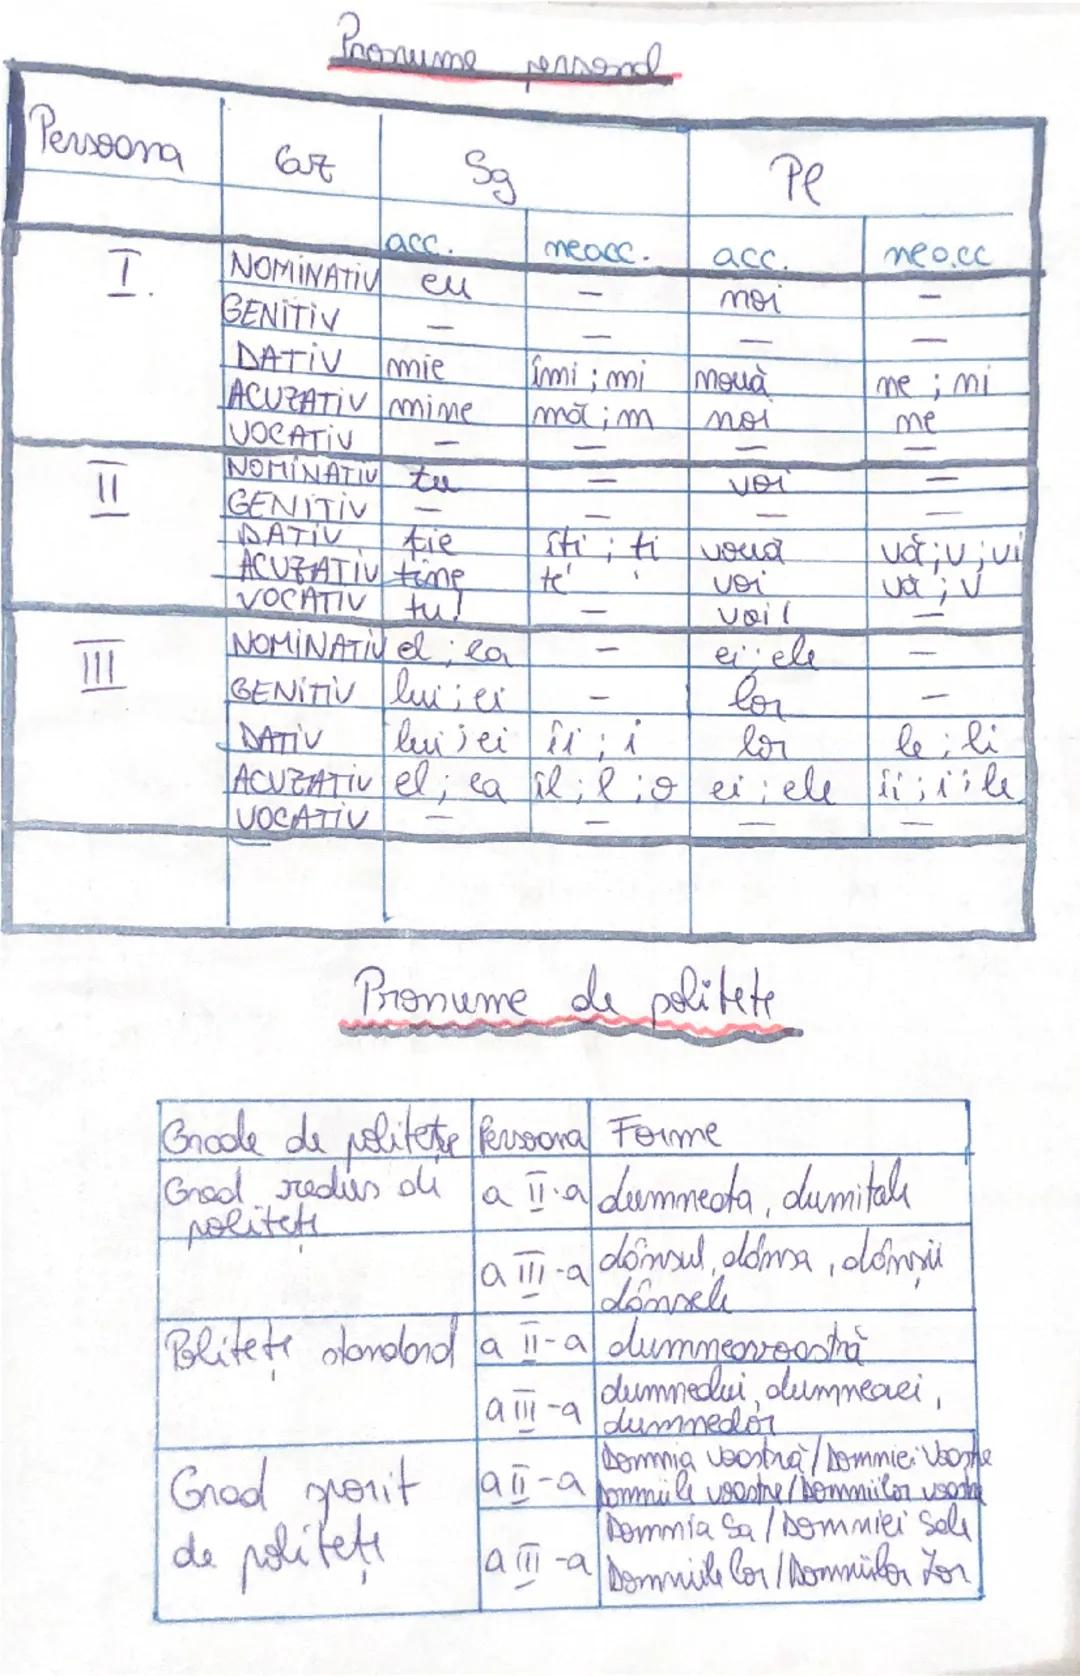 Pronume personal
Persoana Caz Sg Pl
acc. neacc. acc. neacc
I. NOMINATIV eu — noi —
GENITIV — — — —
DATIV mie îmi ; mi nouă ne ; ni
ACUZATIV mine mă ; m noi ne
VOCATIV — — — —
II NOMINATIV tu — voi —
GENITIV — — — —
DATIV ție îți ; ți vouă vă ; v ; vi
ACUZATIV tine te voi vă ; v
VOCATIV tu! — voi! —
III NOMINATIV el ; ea — ei ; ele —
GENITIV lui ; ei — lor —
DATIV lui ; ei îi ; i lor le ; li
ACUZATIV el ; ea îl ; l ; o ei ; ele îi ; i ; le
VOCATIV — — — —
Pronume de politețe
Grade de politețe Persoana Forme
Grad redus de a II-a dumneata, dumitale
politețe
a III-a dânsul, dânsa, dânșii
dânsele
Politețe standard a II-a dumneavoastră
a III-a dumnealui, dumneaei,
dumnealor
Grad sporit a II-a Domnia voastră / Domniei Voastre
Domniile voastre / Domniilor voastre
de politețe a III-a Domnia Sa / Domniei Sale
Domniile lor / Domniilor Lor